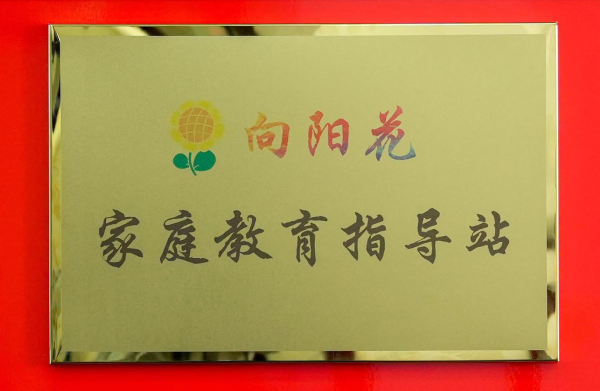 向阳花
家庭教育指导站